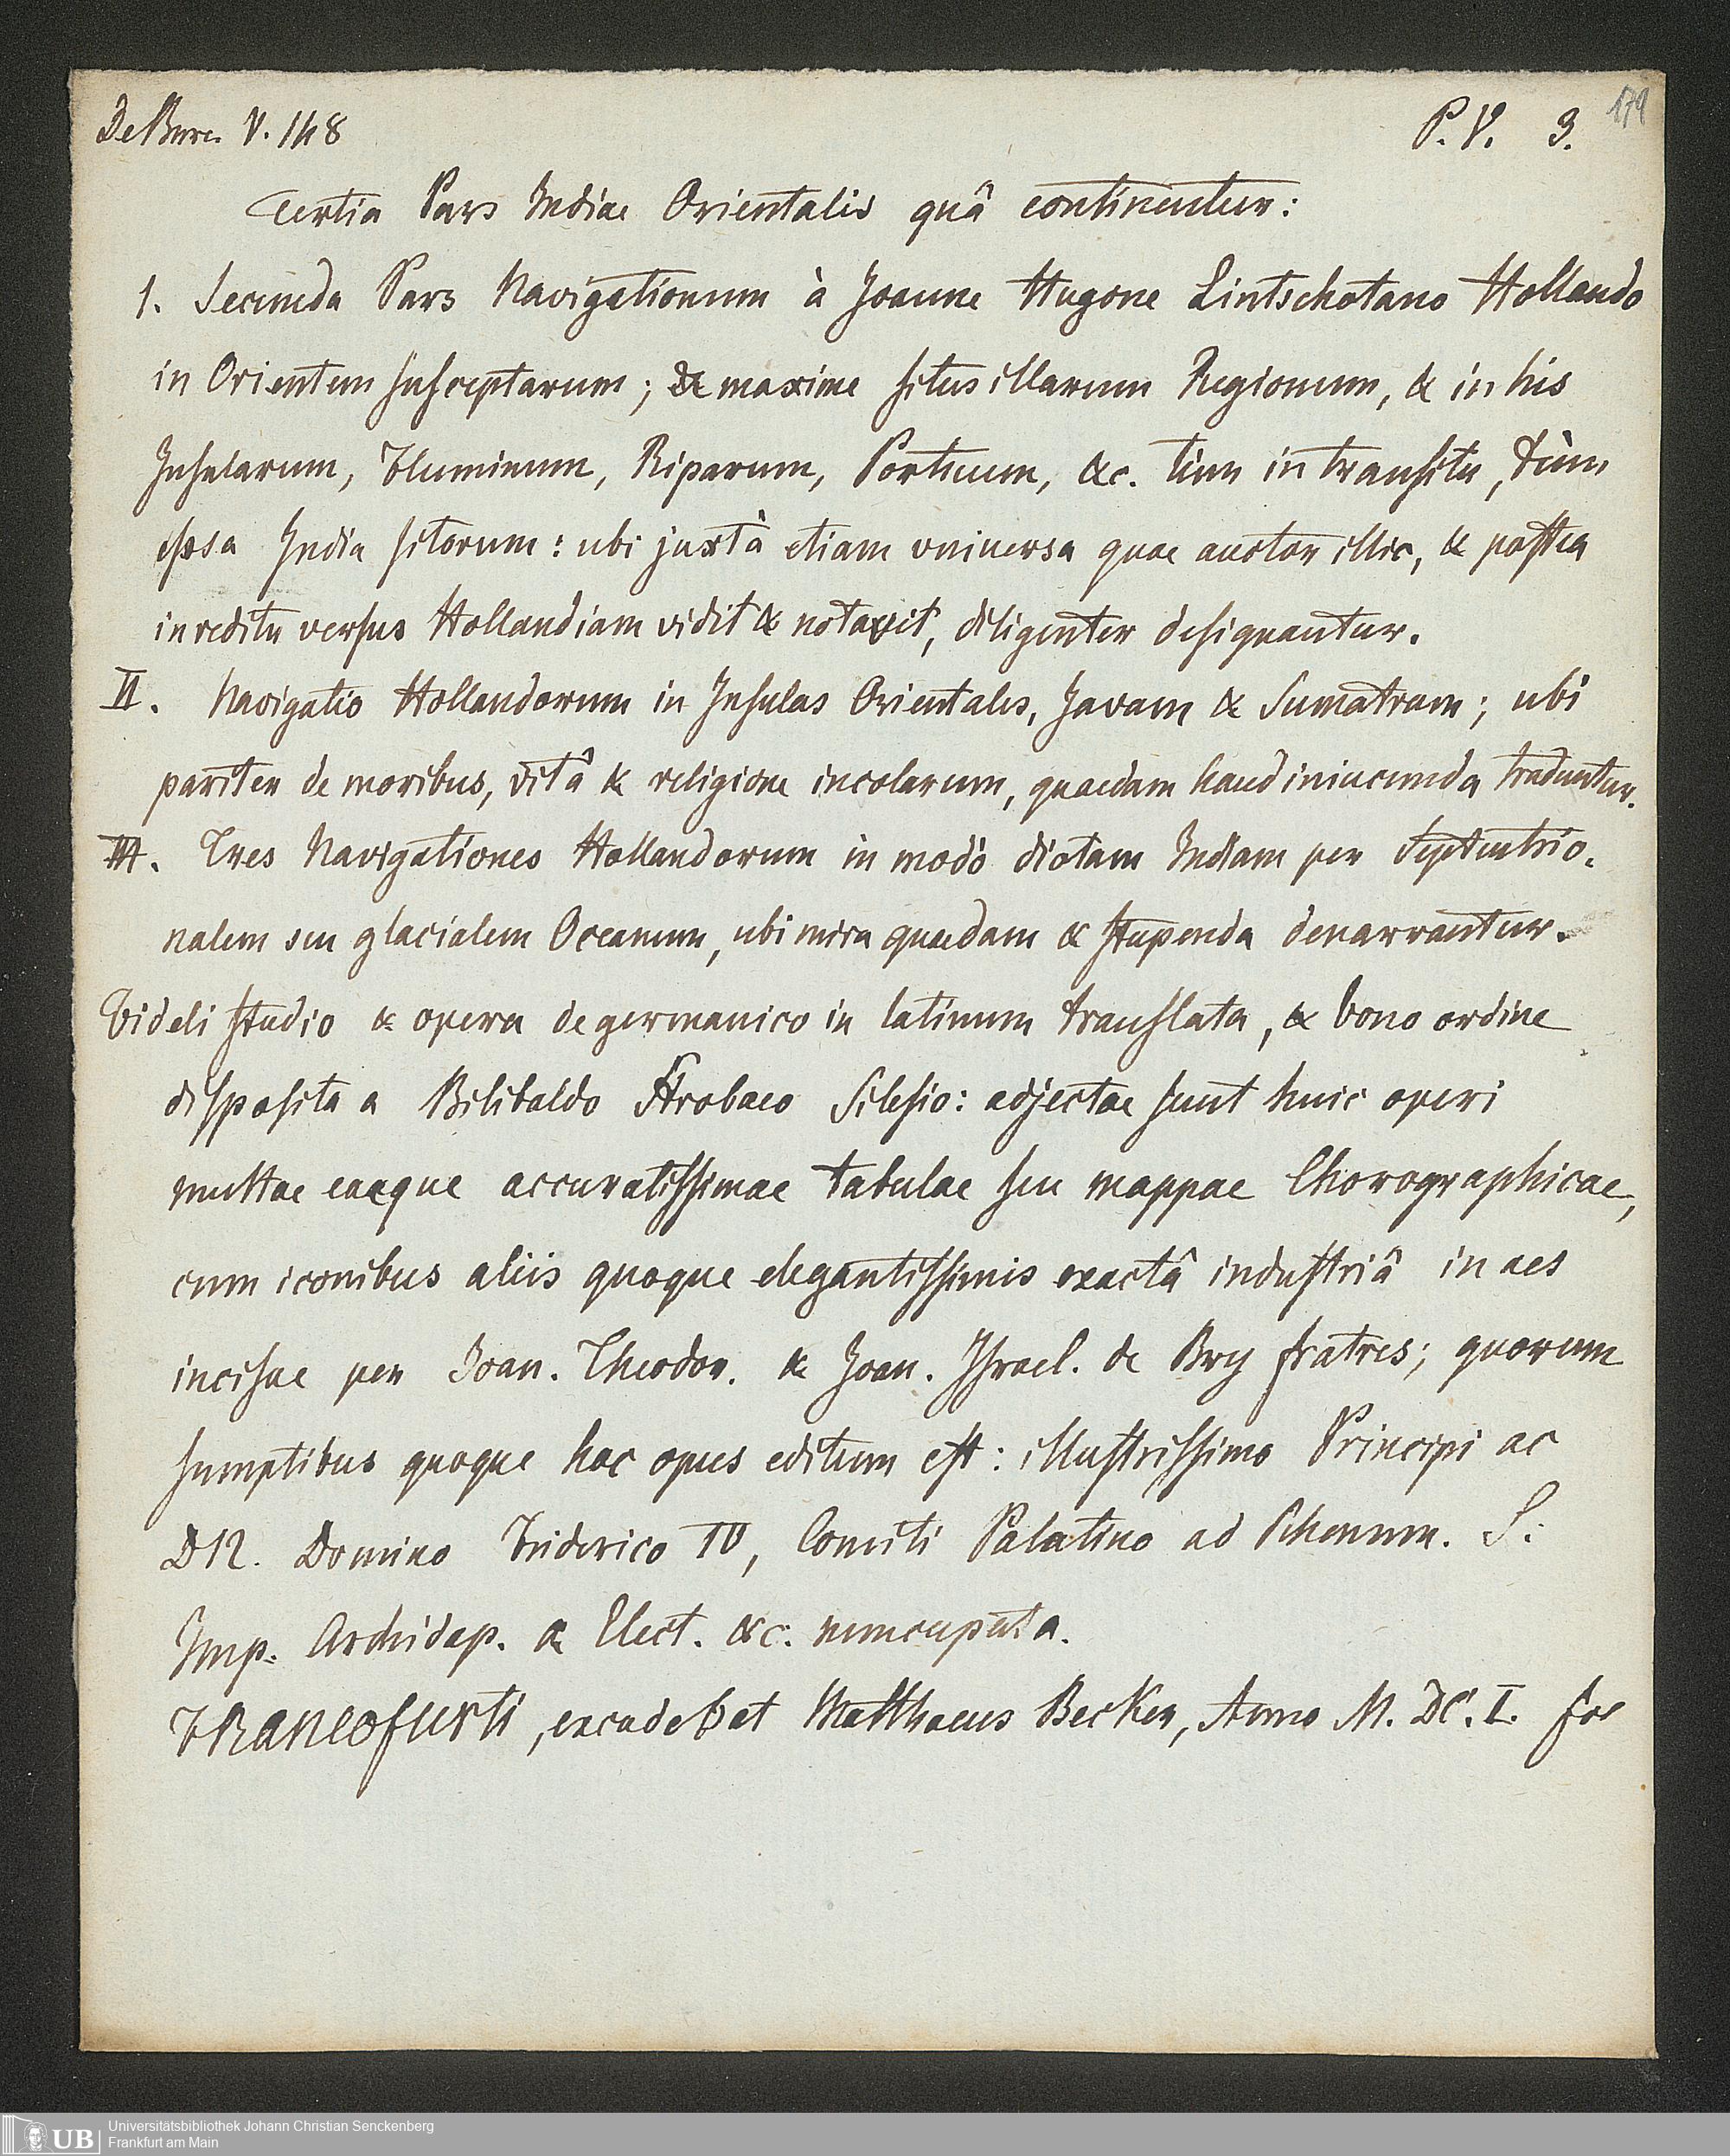 De Bure. V. 148
P. V. 3.
179
Tertia Pars Indiae Orientalis quâ continentur:
1. Secunda Pars Navigationum à Joanne Hugone Lintschotano Hollando
in Orientem susceptarum; & maxime situs illarum Regionum, & in his
Insularum, Fluminum, Riparum, Portuum, &c. tùm in transitu, tùm
ipsa India sitorum: ubi juxtà etiam vniuersa quae auctor illic, & postea
in reditu versus Hollandiam vidit & notavit, diligenter designantur.
II. Navigatio Hollandorum in Insulas Orientales, Javam & Sumatram; ubi
pariter de moribus, vitâ & religione incolarum, quaedam haud iniucunda traduntur.
III. Tres Navigationes Hollandorum in modò dictam Indiam per Septentrio-
nalem seu glacialem Oceanum, ubi mira quaedam & stupenda denarrantur.
Fideli studio & opera de germanico in latinum translata, & bono ordine
disposita a Bilibaldo Strobaeo Silesio: adjectae sunt huic operi
multae eaeque accuratissimae tabulae seu mappae Chorographicae,
cum iconibus aliis quoque elegantissimis exactâ industriâ in aes
incisae per Joan. Theodor. & Joan. Israel. de Bry fratres; quorum
sumptibus quoque hoc opus editum est: illustrissimo Principi ac
DN. Domino Friderico IV, Comiti Palatino ad Rhenum. S.
Imp. Archidap. & Elect. &c. nuncupata.
Francofurti, excudebat Matthaeus Becker, Anno M. DC. I. fol
Universitätsbibliothek Johann Christian Senckenberg
Frankfurt am Main
UB